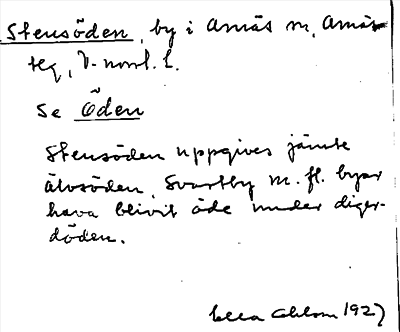 Stensöden, by i Arnäs sn, Arnäs
tg, V-norrl. l.
Se Öden
Stensöden uppgives jämte
älvsöden, Svartby m. fl. byar
hava blivit öde under diger-
döden.
Ella Ohlson 1927